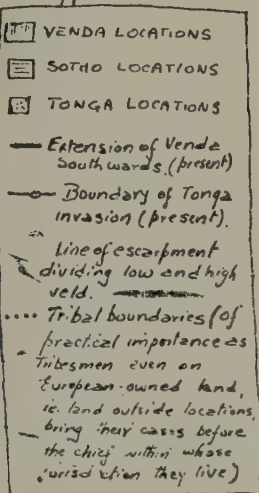 VENDA LOCATIONS
SOTHO LOCATIONS
TONGA LOCATIONS
Extension of Venda
Southwards. (present)
Boundary of Tonga
invasion (present).
Line of escarpment
dividing low and high
veld.
Tribal boundaries (Of
practical importance as
Tribesmen even on
European-owned land,
ie. land outside locations,
bring their cases before
the chief within whose
jurisdiction they live)